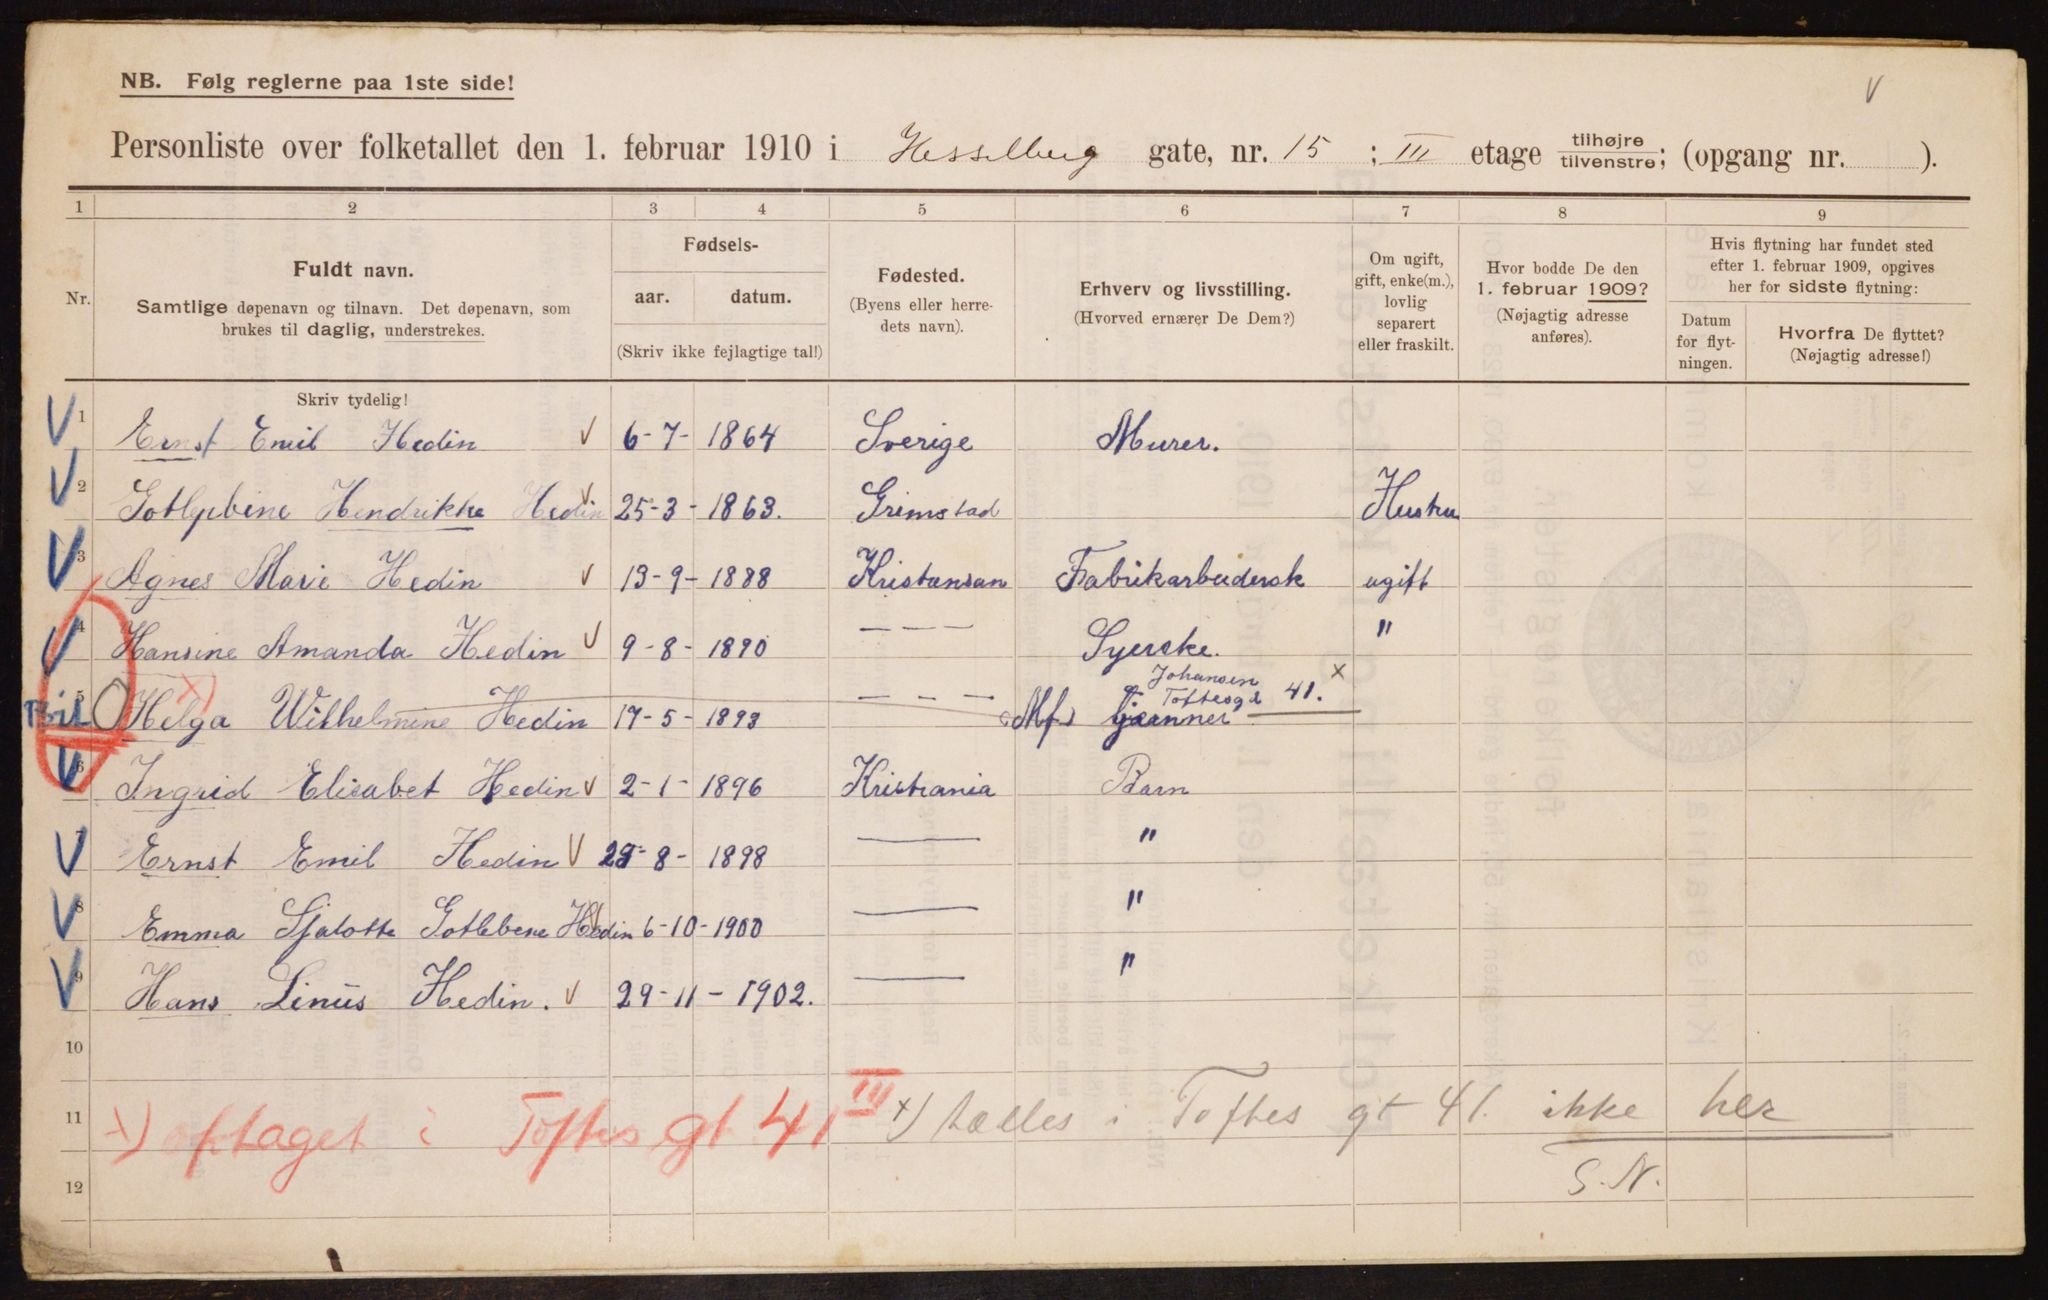 NB. Følg reglerne paa 1ste side!
V
Personliste over folketallet den 1. februar 1910 i Hesselberg gate, nr. 15 ; III etage tilhøjre tilvenstre; (opgang nr. ).
1 2 3 4 5 6 7 8 9
Nr.
Fuldt navn.
Samtlige døpenavn og tilnavn. Det døpenavn, som
brukes til daglig, understrekes.
Fødsels-
aar. datum.
(Skriv ikke fejlagtige tal!)
Fødested.
(Byens eller herre-
dets navn).
Erhverv og livsstilling.
(Hvorved ernærer De Dem?)
Om ugift,
gift, enke(m.),
lovlig
separert
eller fraskilt.
Hvor bodde De den
1. februar 1909?
(Nøjagtig adresse
anføres).
Hvis flytning har fundet sted
efter 1. februar 1909, opgives
her for sidste flytning:
Datum
for flyt-
ningen.
Hvorfra De flyttet?
(Nøjagtig adresse!)
Skriv tydelig!
V 1 Ernst Emil Hedin V 6-7- 1864 Sverige Murer.
V 2 Gotlybine Hendrikke Hedin V 25-3- 1863. Grimstad Hustru
V 3 Agnes Marie Hedin V 13-9- 1888 Kristansan Fabrikarbeidersk ugift
V 4 Hansine Amanda Hedin V 9-8- 1890 — — — Syerske. "
Johansen
Toftesgd 41. x
5 Helga Wilhelmine Hedin 17-5- 1893 — — —
V 6 Ingrid Elisabet Hedin V 2-1- 1896 Kristiania Barn
V 7 Ernst Emil Hedin V 29-8- 1898 — "
V 8 Emma Sjalotte Gotlebene Hedin V 6-10- 1900 — "
V 9 Hans Linus Hedin. V 29-11- 1902. — "
10
11 x) optaget i Toftes gt 41 III x) tælles i Toftes gt 41. ikke her
12 S. N.